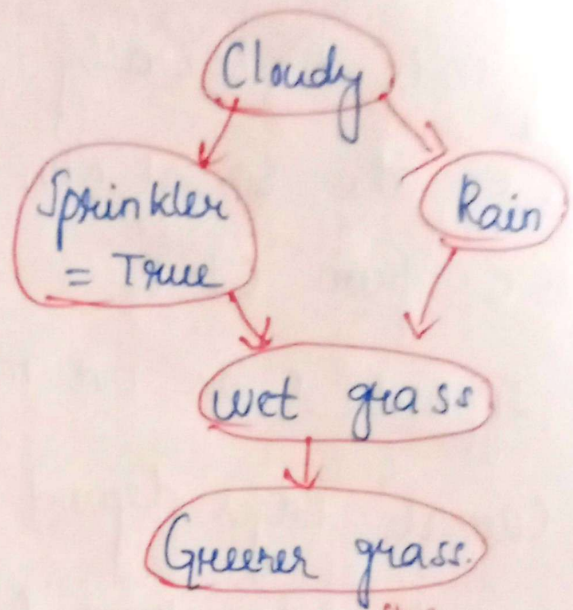 Cloudy
Sprinkler
= True
Rain
wet grass
Greener grass.